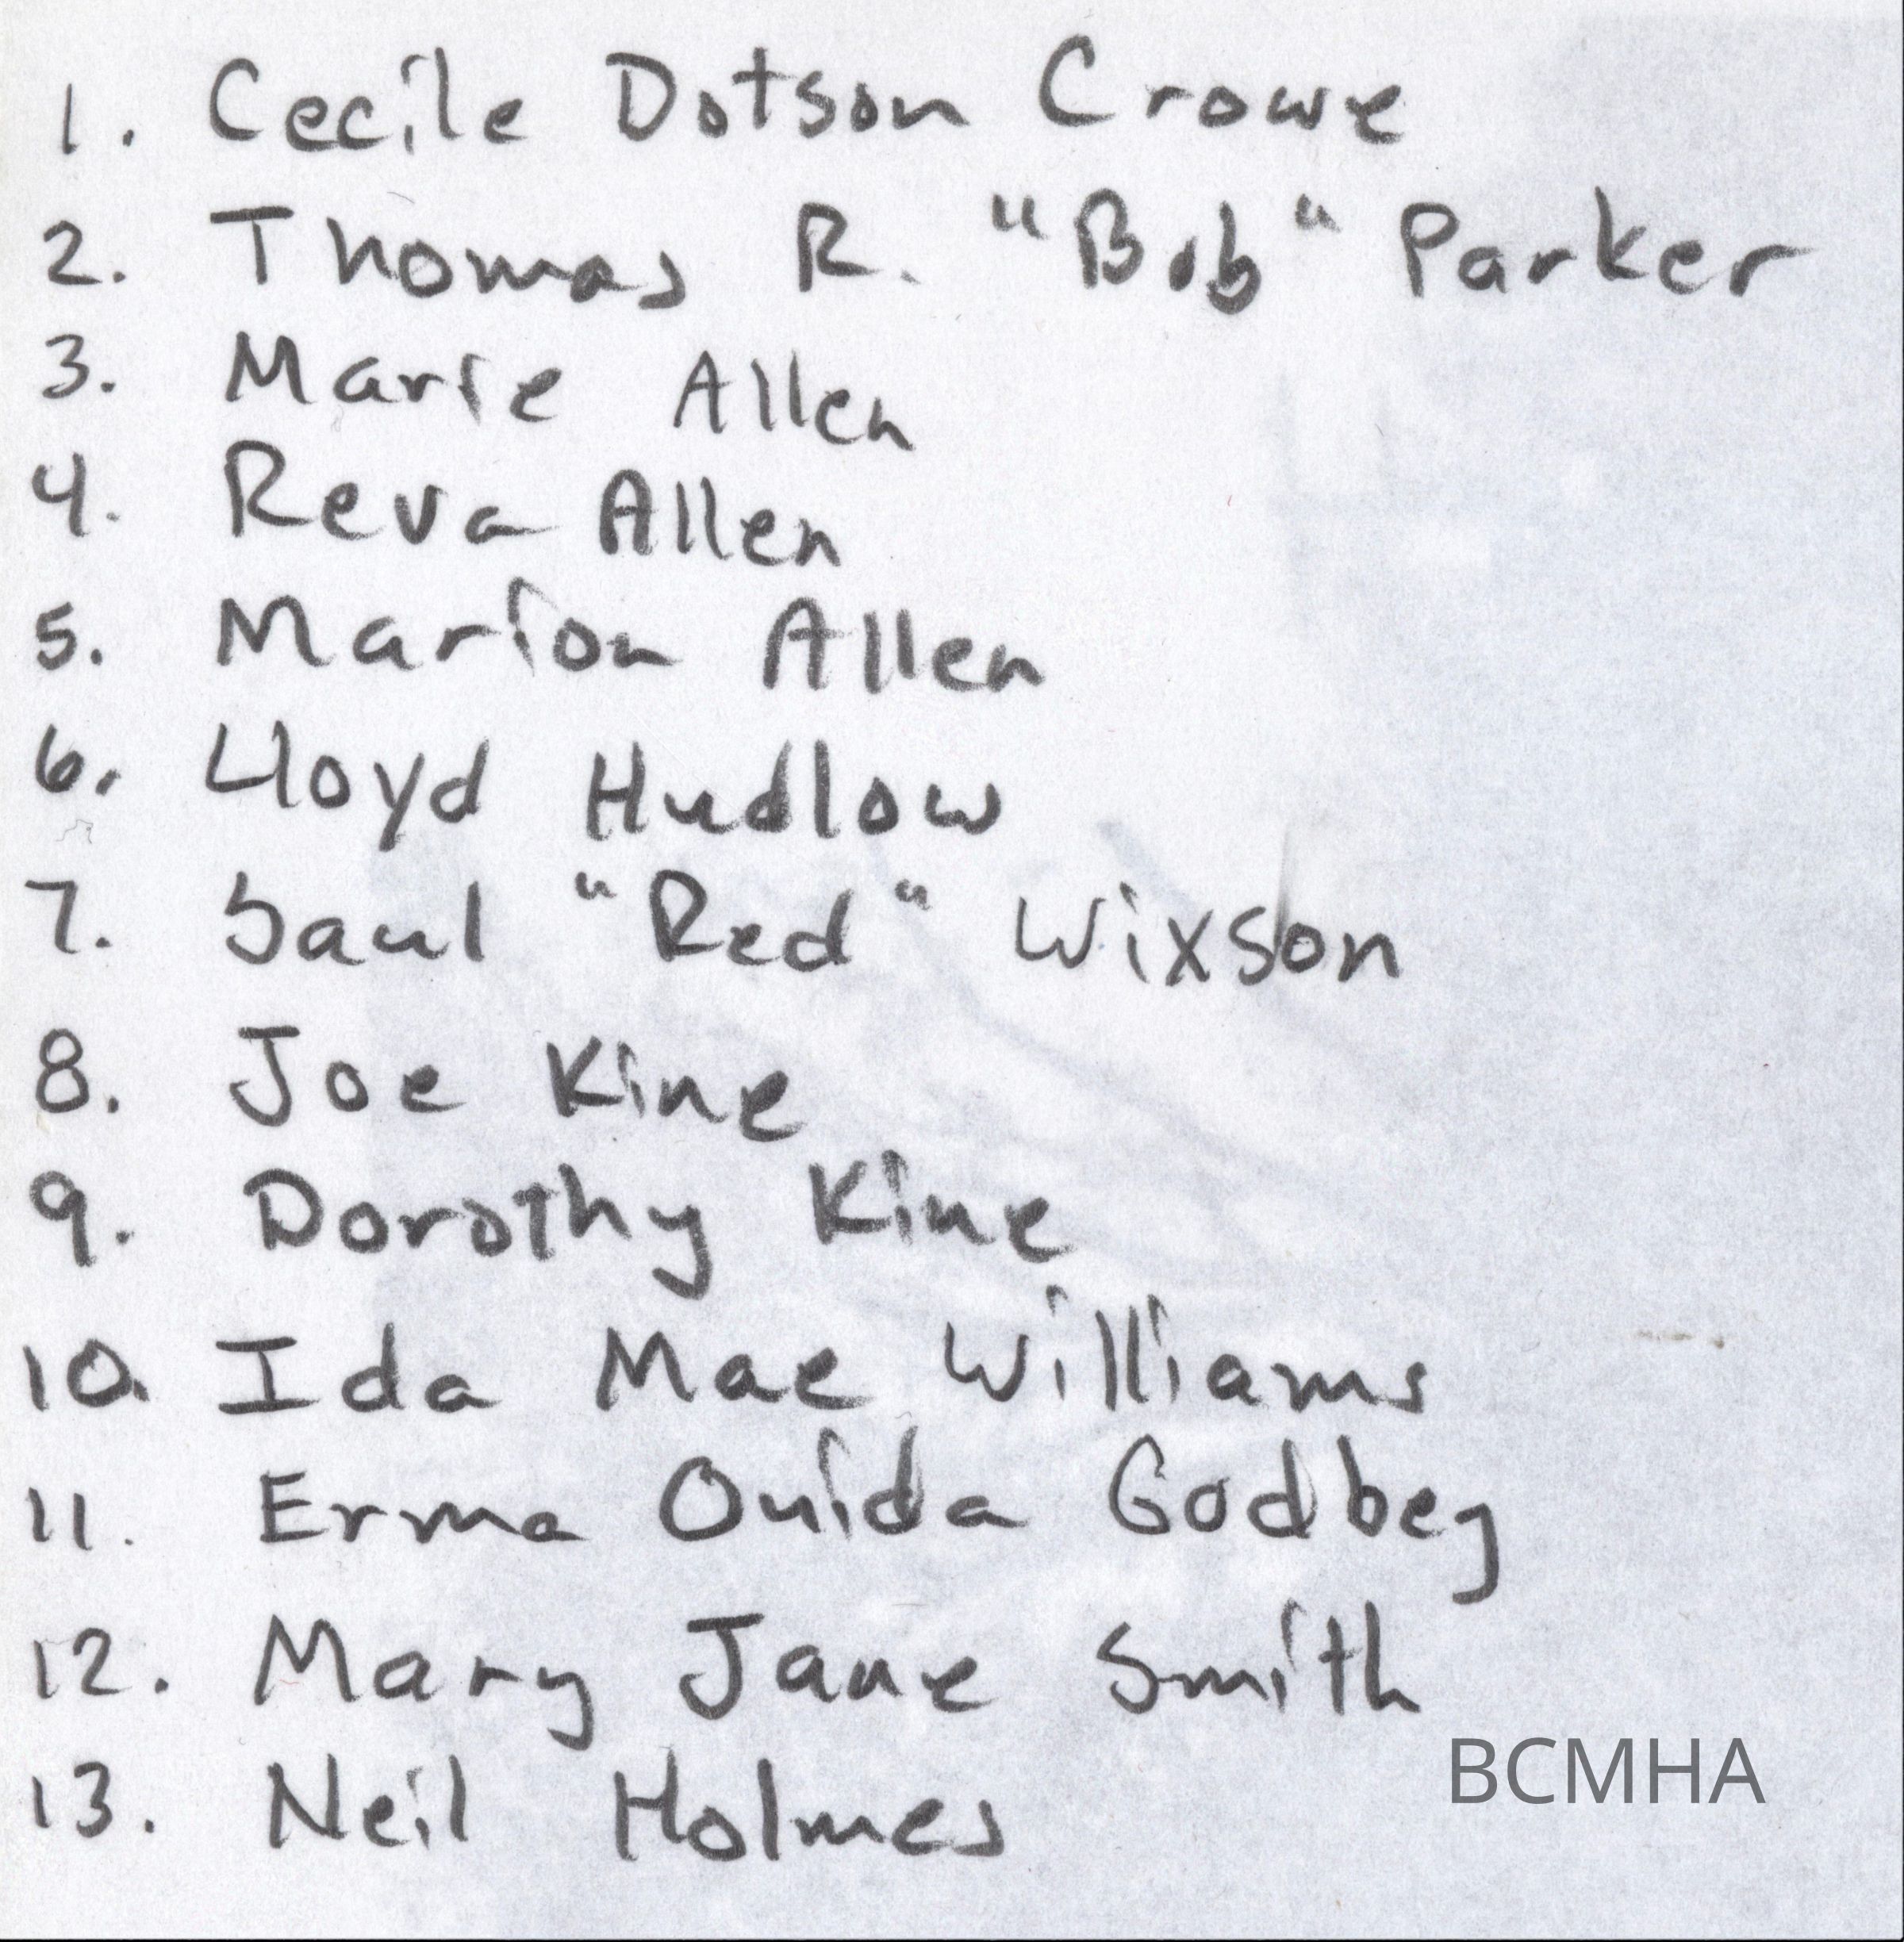 1. Cecile Dotson Crowe
2. Thomas R. "Bob" Parker
3. Marie Allen
4. Reva Allen
5. Marion Allen
6. Lloyd Hudlow
7. Saul "Red" Wixson
8. Joe Kine
9. Dorothy Kine
10. Ida Mae Williams
11. Erma Ouida Godbey
12. Mary Jane Smith
13. Neil Holmes
BCMHA